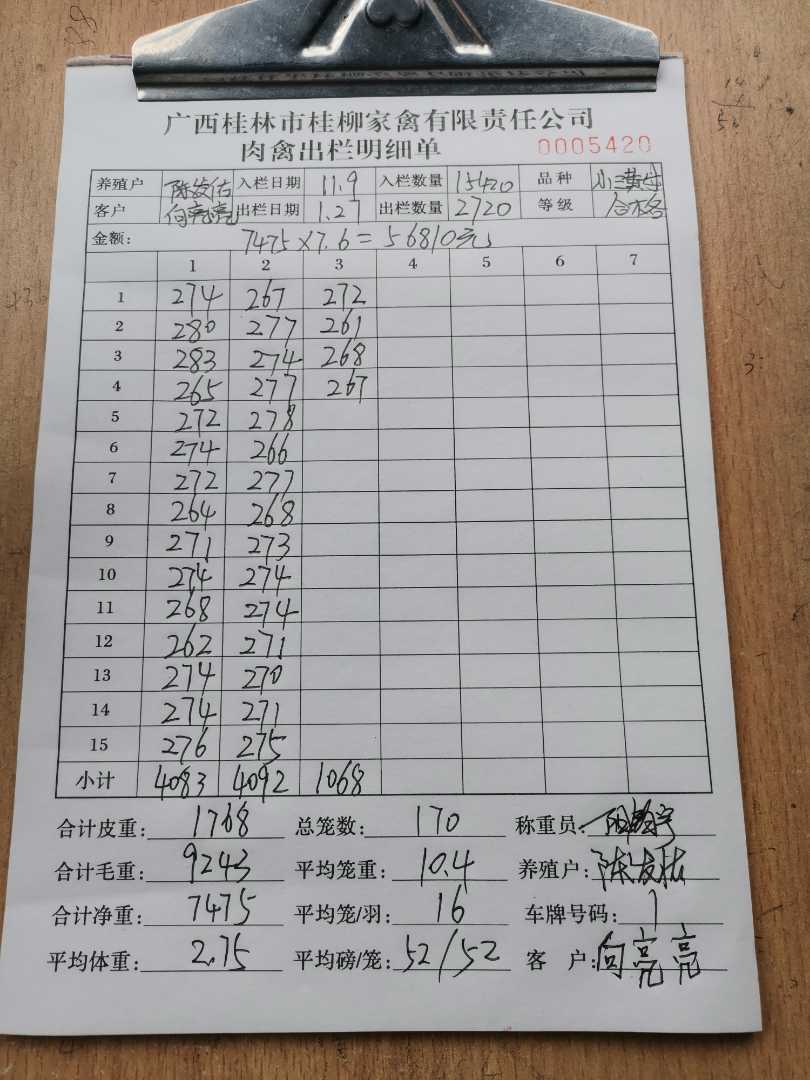 广西桂林市桂柳家禽有限责任公司
肉禽出栏明细单 0005420
养殖户 陈发佑 入栏日期 11.9 入栏数量 15420 品种
客户 向亮亮 出栏日期 1.27 出栏数量 2720 等级 合格
金额: 7475×7.6=56810元
1 2 3 4 5 6 7
1 274 267 272
2 280 277 261
3 283 274 268
4 265 277 267
5 272 278
6 274 266
7 272 277
8 264 268
9 271 273
10 274 274
11 268 274
12 262 271
13 274 270
14 274 271
15 276 275
小计 4083 4092 1068
合计皮重: 1768 总笼数: 170 称重员:
合计毛重: 9243 平均笼重: 10.4 养殖户: 陈发佑
合计净重: 7475 平均笼/羽: 16 车牌号码: 1
平均体重: 2.75 平均磅/笼: 52/52 客户: 向亮亮